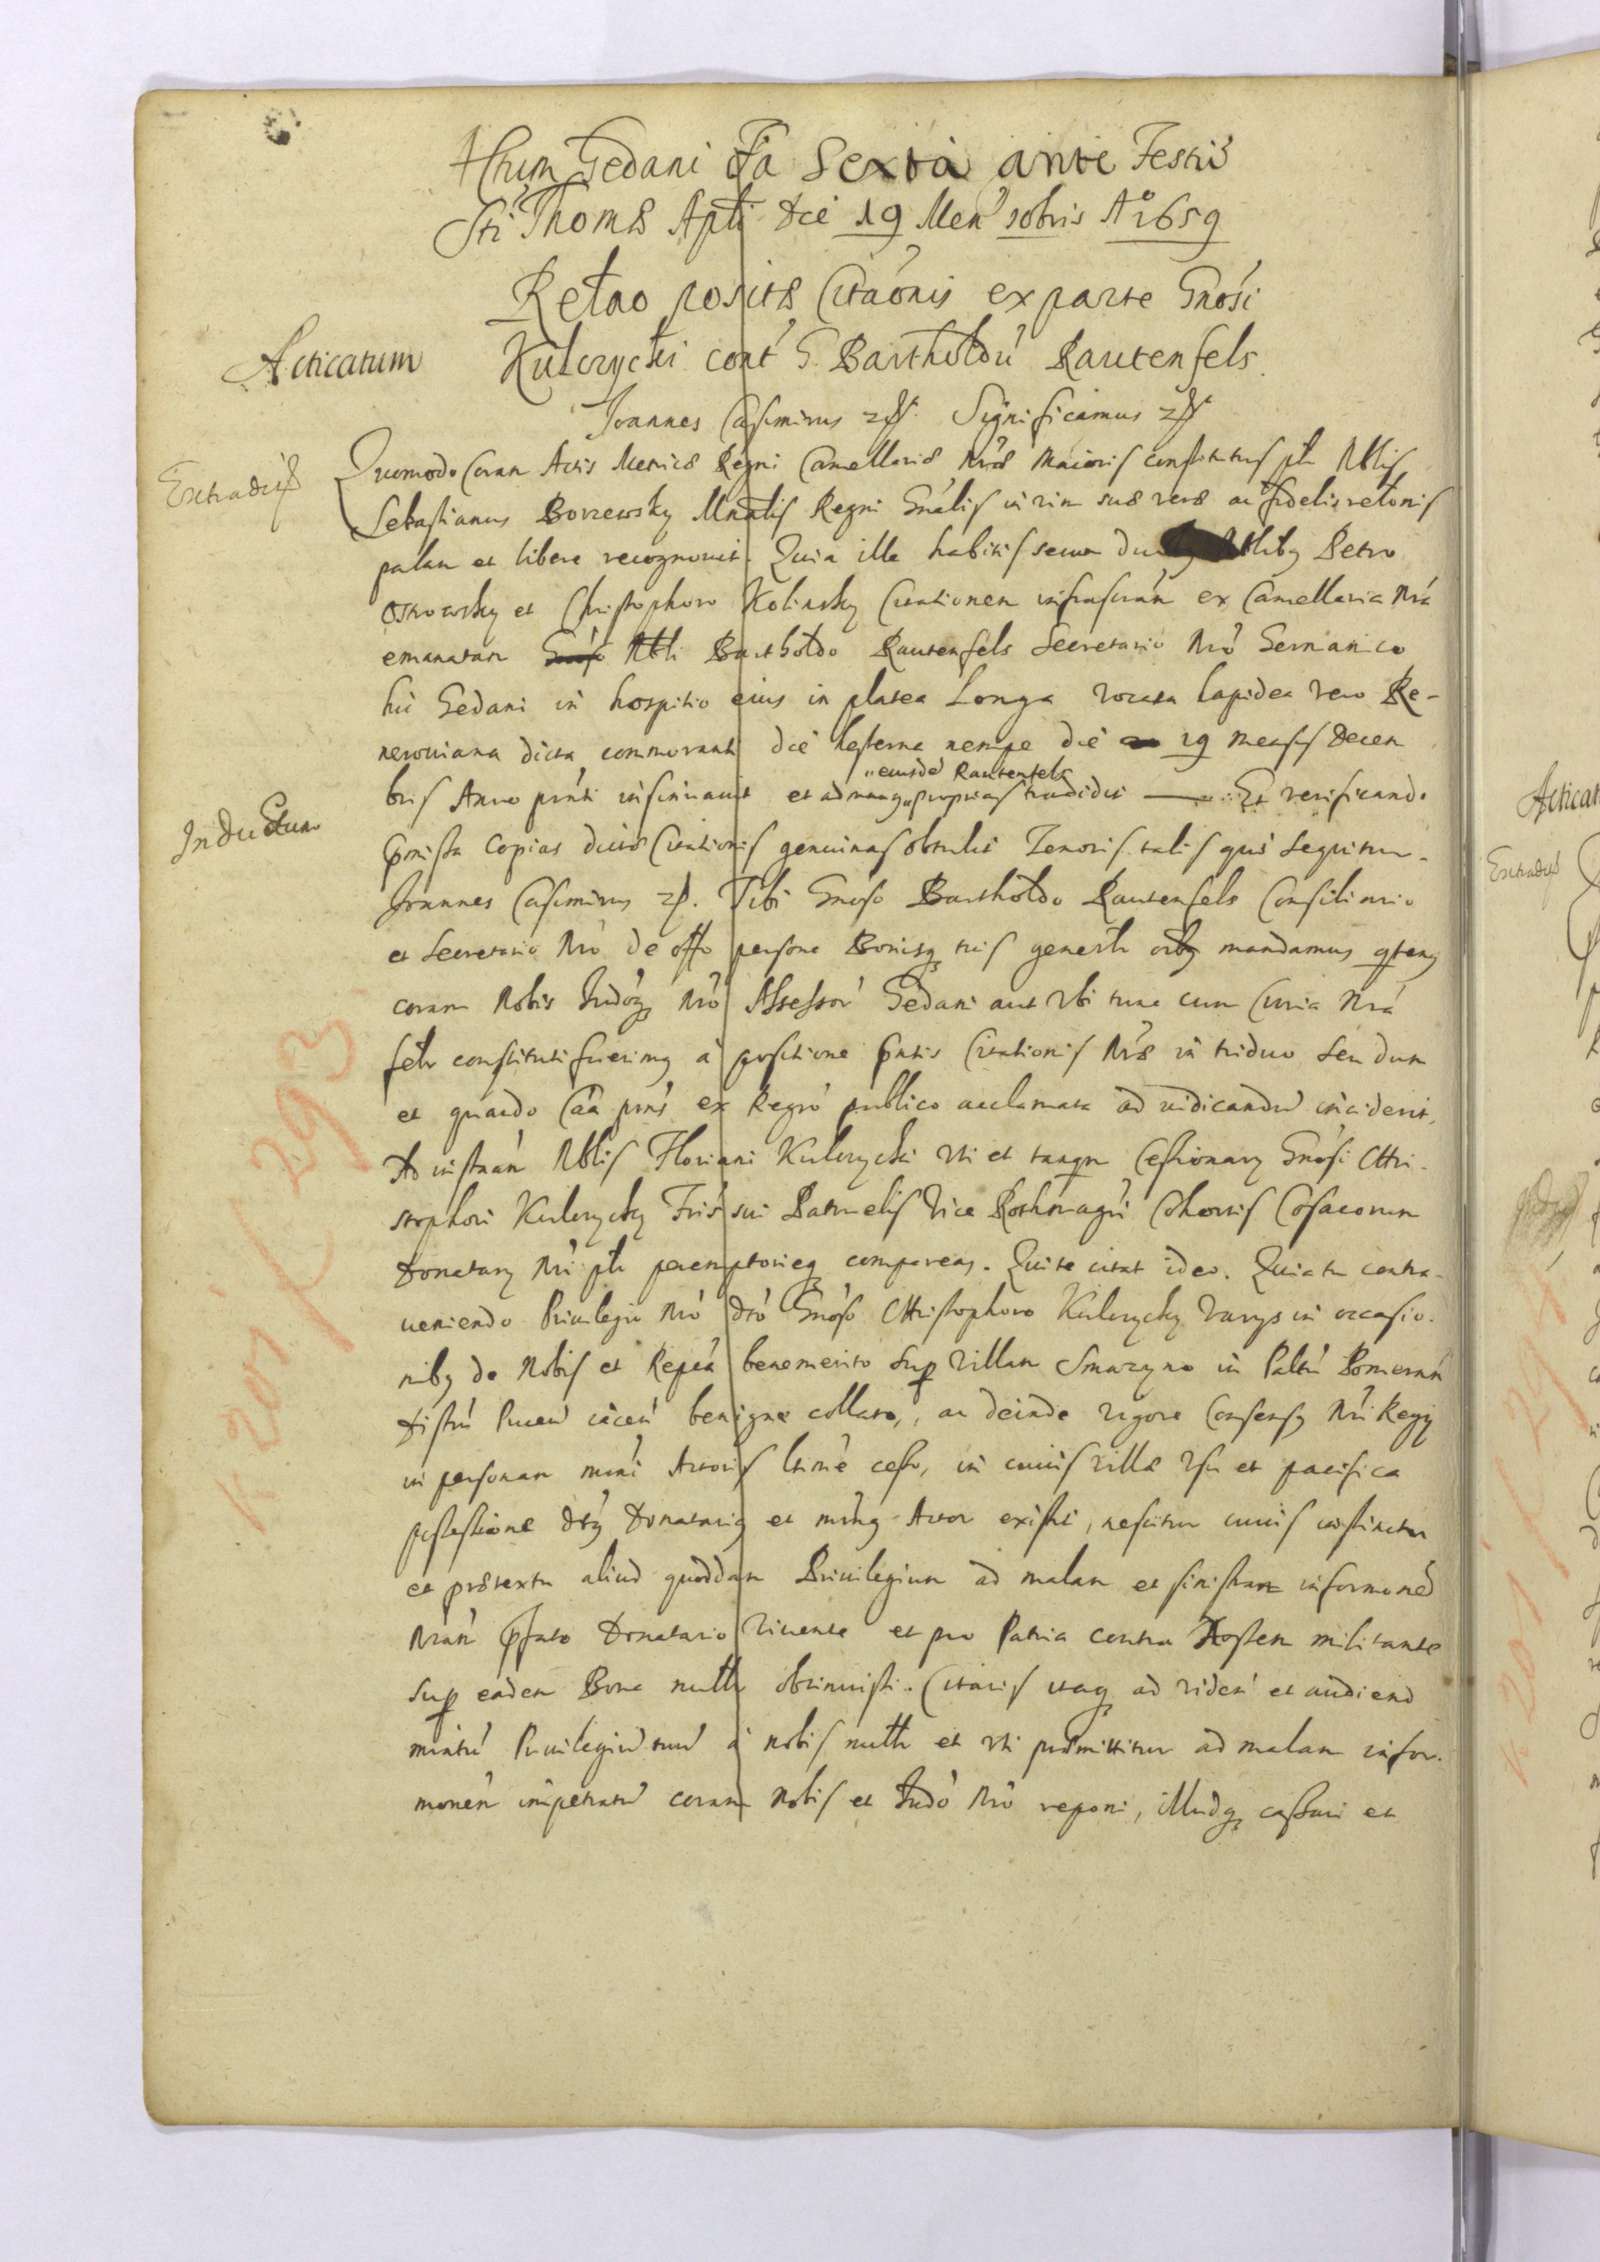 Actum Gedani Fa Sexta ante Festũ
Sti Thomæ Apli die 19 Men xbris Aº 1659
Acticatum
Retao positæ Citaonis ex parte Gnosi
Kulczycki cont G. Bartholdũ Rautenfels.
Joannes Casimirus Significamus
Extradit
Quomodo Coram Actis Metricæ Regni Cancellariæ Nræ Maioris constitutus plr Nblis
Sebastianus Borzewsky Mnralis Regni Gnalis in vim suæ veræ ac fidelis retonis
palam et libere recognouit. Quia ille habitis secum Nblibq Petro
Ostrowsky et Christophoro Kolinsky Citationem infrascram ex Cancellaria Nra
emanatam Nbli Bartholdo Rautenfels Secretario Nro Germanico
hic Gedani in hospitio eius in platea Longa vocata lapidea vero Re-
nerowiana dicta commoranti die hesterna nempe die 19 mensis Decem
Inductum
bris Anno prnti insinuauit et ad manq proprias eiusdẽ Rautenfels tradidit — Et verificando
præmissa Copias dictæ Citationis genuinas obtulit Tenoris talis qui sequitur.
Joannes Casimirus Tibi Gnoso Bartholdo Rautenfels Consiliario
et Secretario Nro de offo persona Bonisq tuis generlr oibq mandamus qtenq
coram Nobis Iudoq Nro Assessor Gedani aut vbi tunc cum Curia Nra
felr constituti fuerimq a positione pntis Citationis Nræ in triduo seu dum
et quando Caa pns ex Regro publico acclamata ad iudicandũ inciderit,
Ad instnam Nblis Floriani Kulczycki vti et tanqm Cessionarij Gnosi Chri-
stophori Kulczycky Fris sui Patruelis Vice Rothmagri Cohortis Cosacorum
Donatarij Nri plr peremptorieq compareas. Qui te citat ideo. Quia tu contra-
ueniendo Priuilegio Nro dto Gnoso Christophoro Kulczycky varys in occasio-
nibq de Nobis et Repca benemerito sup villam Smazyno in Paltu Pomeran
distru Pucen iacen benigne collato, ac deinde vigore Consensq Nri Regij
in personam mnri Actoris ltime cesso, in cuius villæ vsu et pacifica
possessione dtq Donatariq et mnrq Actor existit, nescitur cuius instinctu
et prætextu aliud quoddam Priuilegium ad malam et sinistram informonẽ
Nram pfato Donatario viuente et pro Patria contra Hostem militante
sup eadem Bona nullr obtinuisti. Citaris itaq ad viden et audiend
mnratũ Priuilegiũ tuũ a nobis nullr et vti præmittitur ad malam infor-
monem impetratũ coram Nobis et Iudo Nro reponi, illudq cassari et
Acticat
Extradit